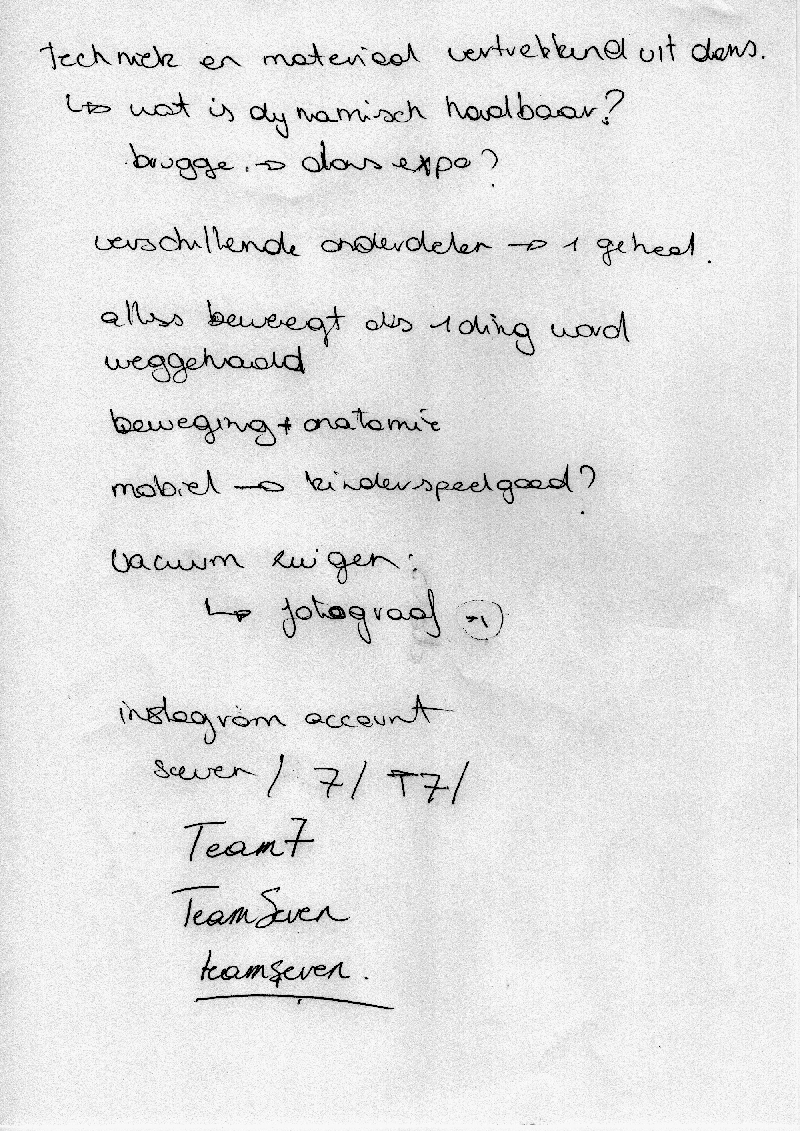 techniek en materiaal vertrekkend uit dans.
↳ wat is dynamisch haalbaar?
brugge. → dans expo?
verschillende onderdelen → 1 geheel.
alles beweegt als 1 ding word
weggehaald
beweging + anatomie
mobiel → kinderspeelgoed?
vacuum zuigen:
↳ fotograaf
instagram account
seven / 7 / T7 /
Team7
TeamSeven
teamseven.